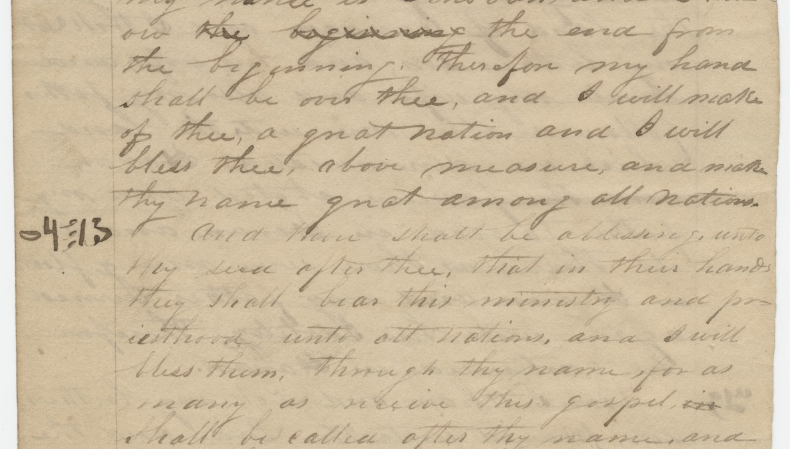 my name is
ow the beginning the end from
the beginning. Therefore my hand
shall be over thee, and I will make
of thee, a great nation and I will
bless thee, above measure, and make
thy name great among all nations.
And thou shalt be a blessing, unto
thy seed after thee, that in their hands
they shall bear this ministry and pr-
iesthood unto all nations, and I will
bless them, through thy name, for as
many as receive this gospel, in
shall be called after thy name, and